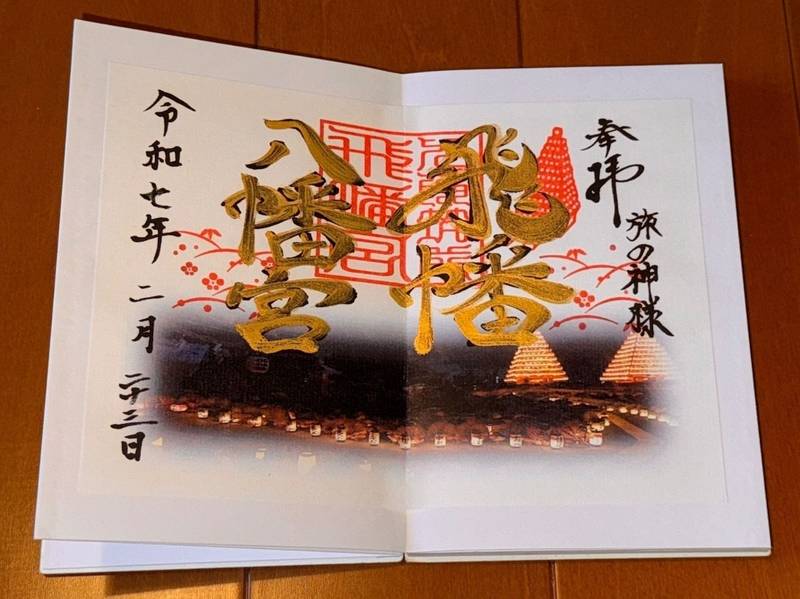 奉拝
旅の神様
飛幡
八幡宮
飛幡宮
令和七年 二月 二十三日